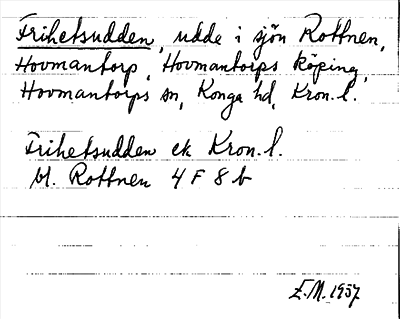 Frihetsudden, udde i sjön Rottnen,
Hovmantorp, Hovmantorps köping,
Hovmantorps sn, Konga hd, Kron. l.
Frihetsudden ek Kron. l.
bl. Rottnen 4 F 8 b
E.M. 1957